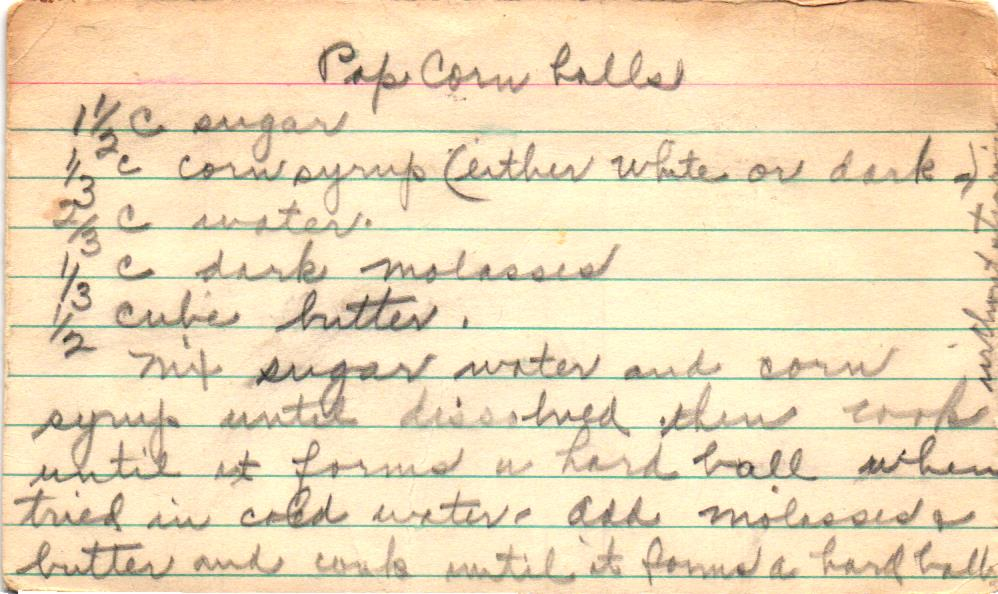 Pop Corn balls
1 1/2 C sugar
1/3 C corn syrup (either white or dark)
2/3 C water.
1/3 C dark molasses
1/2 cube butter.
Mix sugar water and corn
syrup until dissolved then cook
until it forms a hard ball when
tried in cold water - add molasses &
butter and cook until it forms a hard ball
without